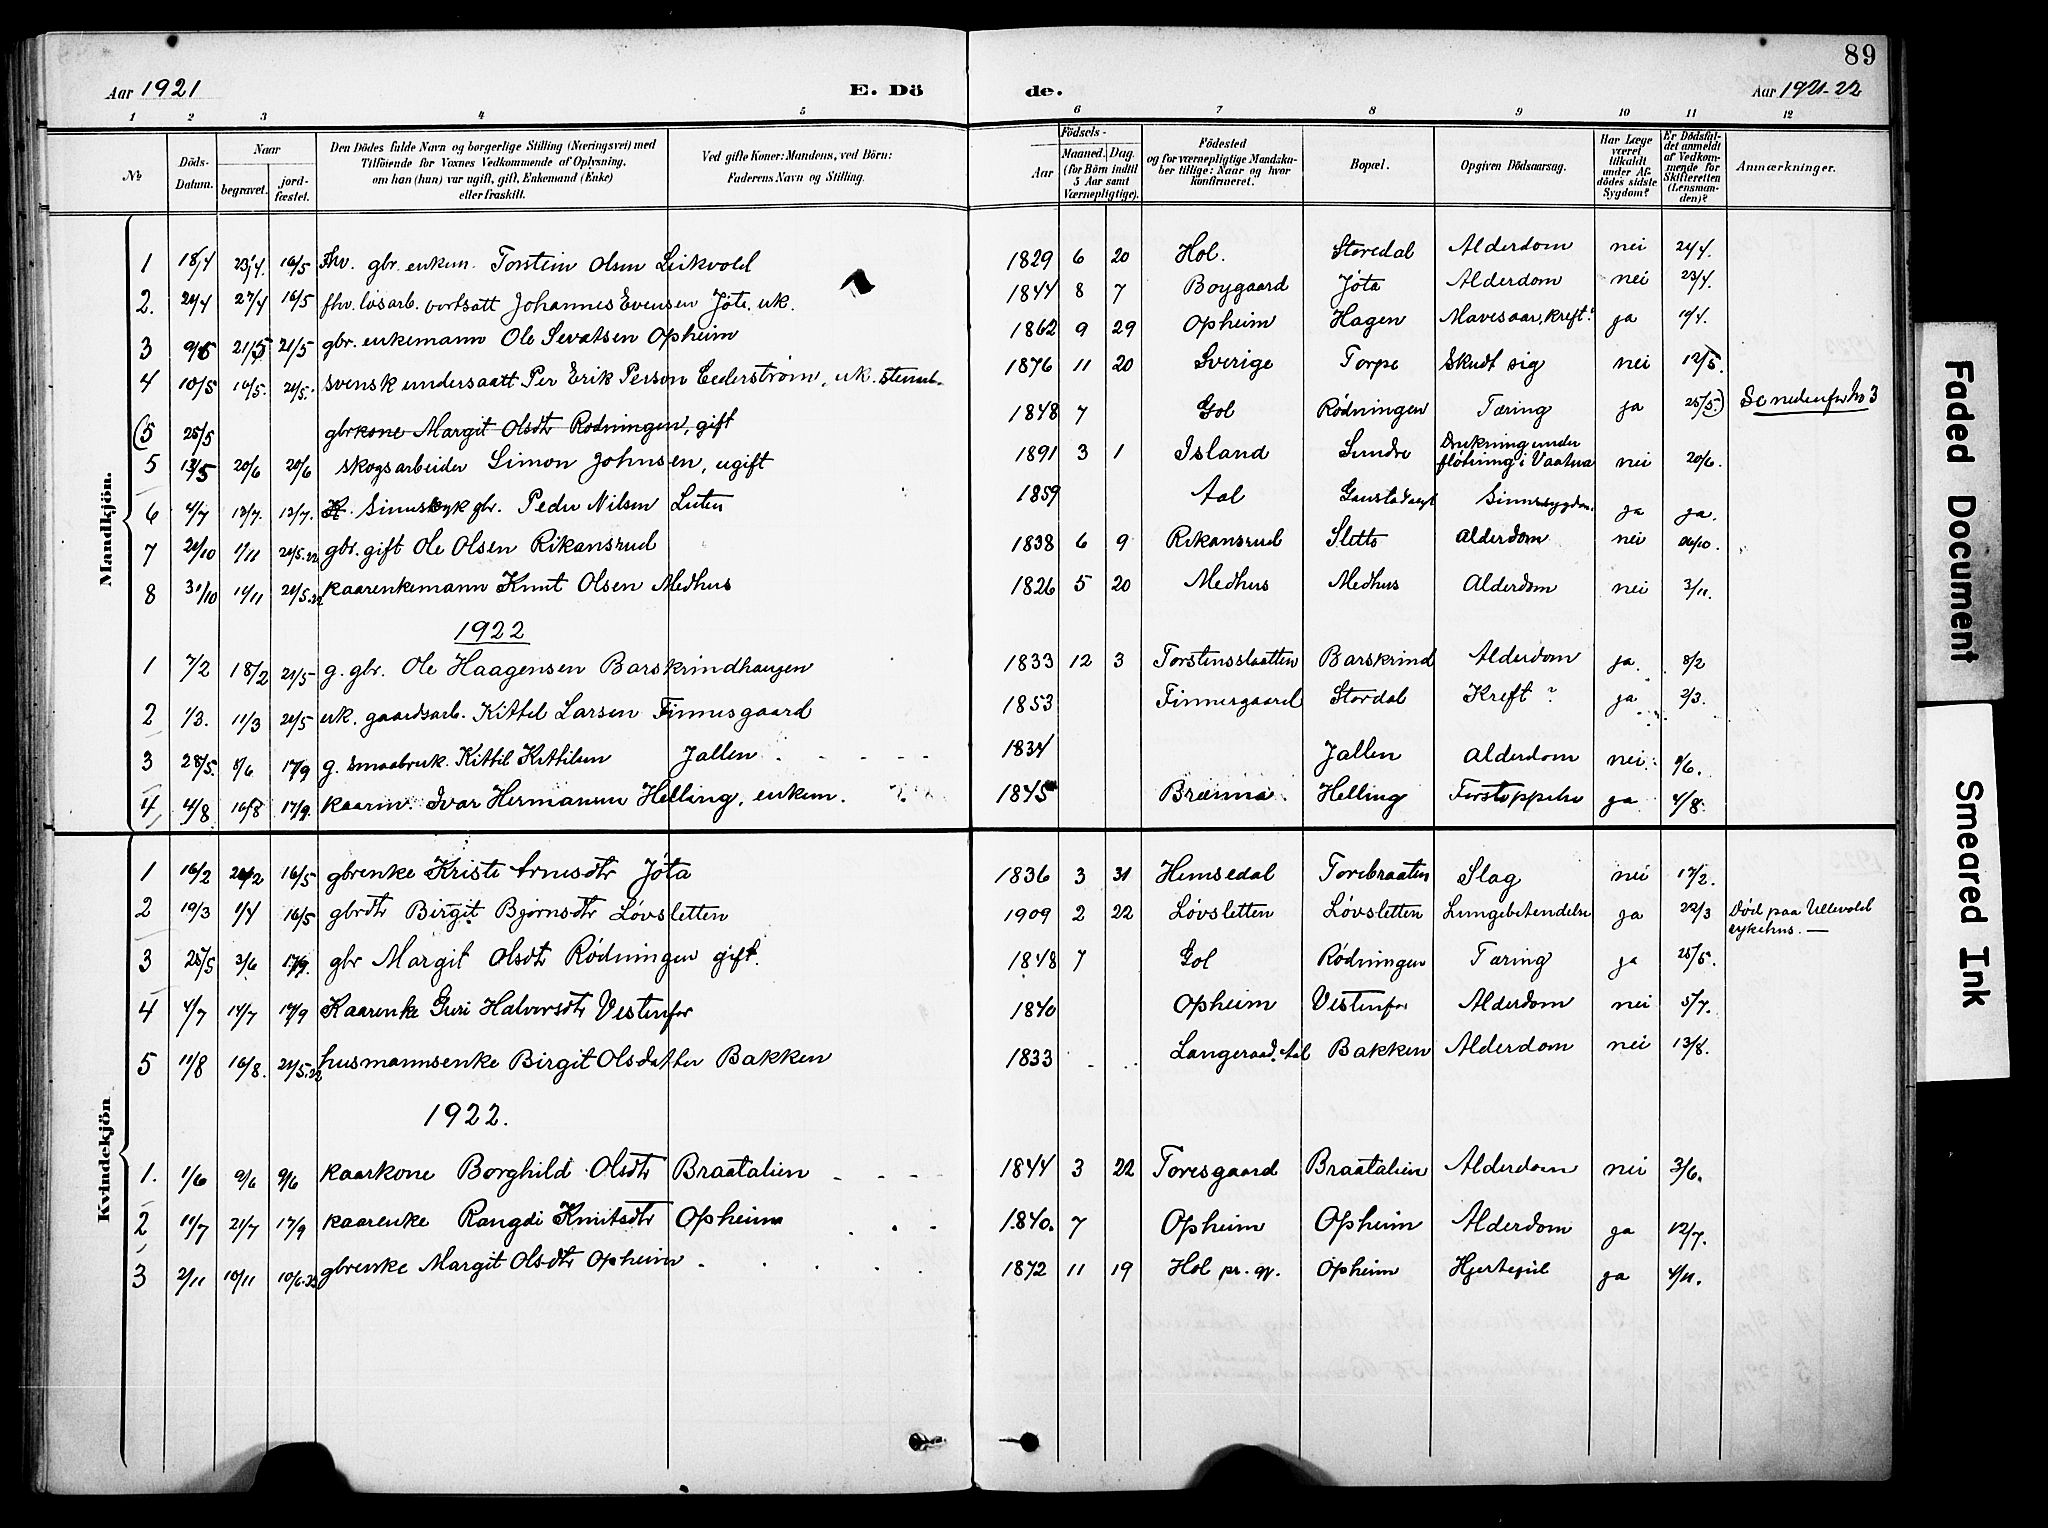 89
Aar 1921 E. Dö de. Aar 1921-22
1 2 3 4 5 6 7 8 9 10 11 12
№ Döds-Datum. Naar begravet. jord-fæstet. Den Dödes fulde Navn og borgerlige Stilling (Næringsvei) med Tilföiende for Voxnes Vedkommende af Oplysning, om han (hun) var ugift, gift, Enkemand (Enke) eller fraskilt. Ved gifte Koner: Mandens, ved Börn: Faderens Navn og Stilling. Födsels- Aar Maaned. Dag. (for Börn indtil 5 Aar samt Værnepligtige). Födested og for værnepligtige Mandskaber tillige: Naar og hvor konfirmeret. Bopæl. Opgiven Dödsaarsag. Har Læge været tilkaldt under Afdödes sidste Sygdom? Er Dödsfaldet anmeldt af Vedkommende for Skifteretten (Lensmanden)? Anmærkninger.
Mandkjön.
1 18/4 23/4. 16/5 Fhv. gbr. enkem. Torstein Olsen Leikvold 1829 6 20 Hol. Storedal Alderdom nei 24/4.
2. 21/4 27/4 16/5 fhv. løsarb. bortsatt Johannes Evensen Jøte. uk. 1844 8 7 Boygaard Jøta Alderdom nei 23/4.
3 9/5 21/5 21/5 gbr. enkemann Ole Sevatsen Opheim 1862 9 29 Opheim Hagen Mavesaar, kreft? ja
4 10/5 16/5. 21/5. svensk undersaatt Per Erik Person Cederstrøm, uk. 1876 11 20 Sverige Torpe Skudt sig nei 12/5.
(5 25/5 gbrkone Margit Olsdtr Rødningen, gift 1848 7 Gol Rødningen Tæring ja 25/5.) Se nedenfor No 3
5 13/5 20/6 20/6 skogsarbeider Simon Johnsen, ugift 1891 3 1 Island Sundre Drukning under fløtning i Vaatna nei 20/6.
6 4/7 12/7. 12/7. Sinnssyk gbr. Peder Nilsen Luten 1859 Aal Sinnssygdom. ja ja.
7 21/10 1/11 21/5.22 gbr. gift Ole Olsen Rikansrud 1838 6 9 Rikansrud Sletto Alderdom nei
8 31/10 11/11 21/5.22 kaarenkemann Knut Olsen Medhus 1826 5 20 Medhus Medhus Alderdom nei 3/11.
1922
1 7/2 18/2 21/5 g. gbr. Ole Haagensen Barskrindhaugen 1833 12 3 Torstensslaatten Barskrind Alderdom ja. 8/2
2 1/3. 11/3 21/5 uk. gaardsarb. Kittel Larsen Finnesgaard 1853 Finnesgaard Stordal Kreft? ja 2/3.
3 28/5. 8/6 17/9 g. smaabruk. Kittil Kittilsen Jallen 1834 Jallen Alderdom nei 9/6.
4 4/8 16/8 17/9. kaarm. Ivar Hermansen Helling, enkem. 1845 Brænna. Helling ja 4/8.
Kvindekjön
1 16/2 26/2 16/5 gbrenke Kristi Arnesdtr Jøta 1836 3 31 Hemsedal Torebraaten Slag nei 17/2.
2 19/3 1/4 16/5 gbrdtr Birgit Bjørnsdtr Løvsletten 1909 2 22 Løvsletten Løvsletten Lungebetendelse ja 22/3 Død paa Ullevold sykehus. —
3 25/5 3/6 17/9. gbr Margit Olsdtr Rødningen gift. 1848 7 Gol Rødningen Tæring ja 25/5.
4 4/7 14/7 17/9 Kaarenke Guri Halvorsdtr Vestenfor 1840 Opheim Vestenfor Alderdom nei 5/7.
5 11/8 16/8. 21/5.22 husmannsenke Birgit Olsdatter Bakken 1833 Langeraad, Aal Bakken Alderdom nei 13/8.
1922.
1. 1/6 9/6 9/6 kaarkone Borghild Olsdtr Braatalien 1844 3 22 Toresgaard Braatalien Alderdom nei 3/6.
2 11/7 21/7 17/9 kaarenke Rangdi Knutsdtr Opheim 1840. 7 Opheim Opheim Alderdom ja 12/7.
3 2/11 10/11 10/6.23 gbrenke Margit Olsdtr Opheim 1872 11 19 Hol pr. gj. Opheim Hjertefeil ja 4/11.
Faded Document
Smeared Ink